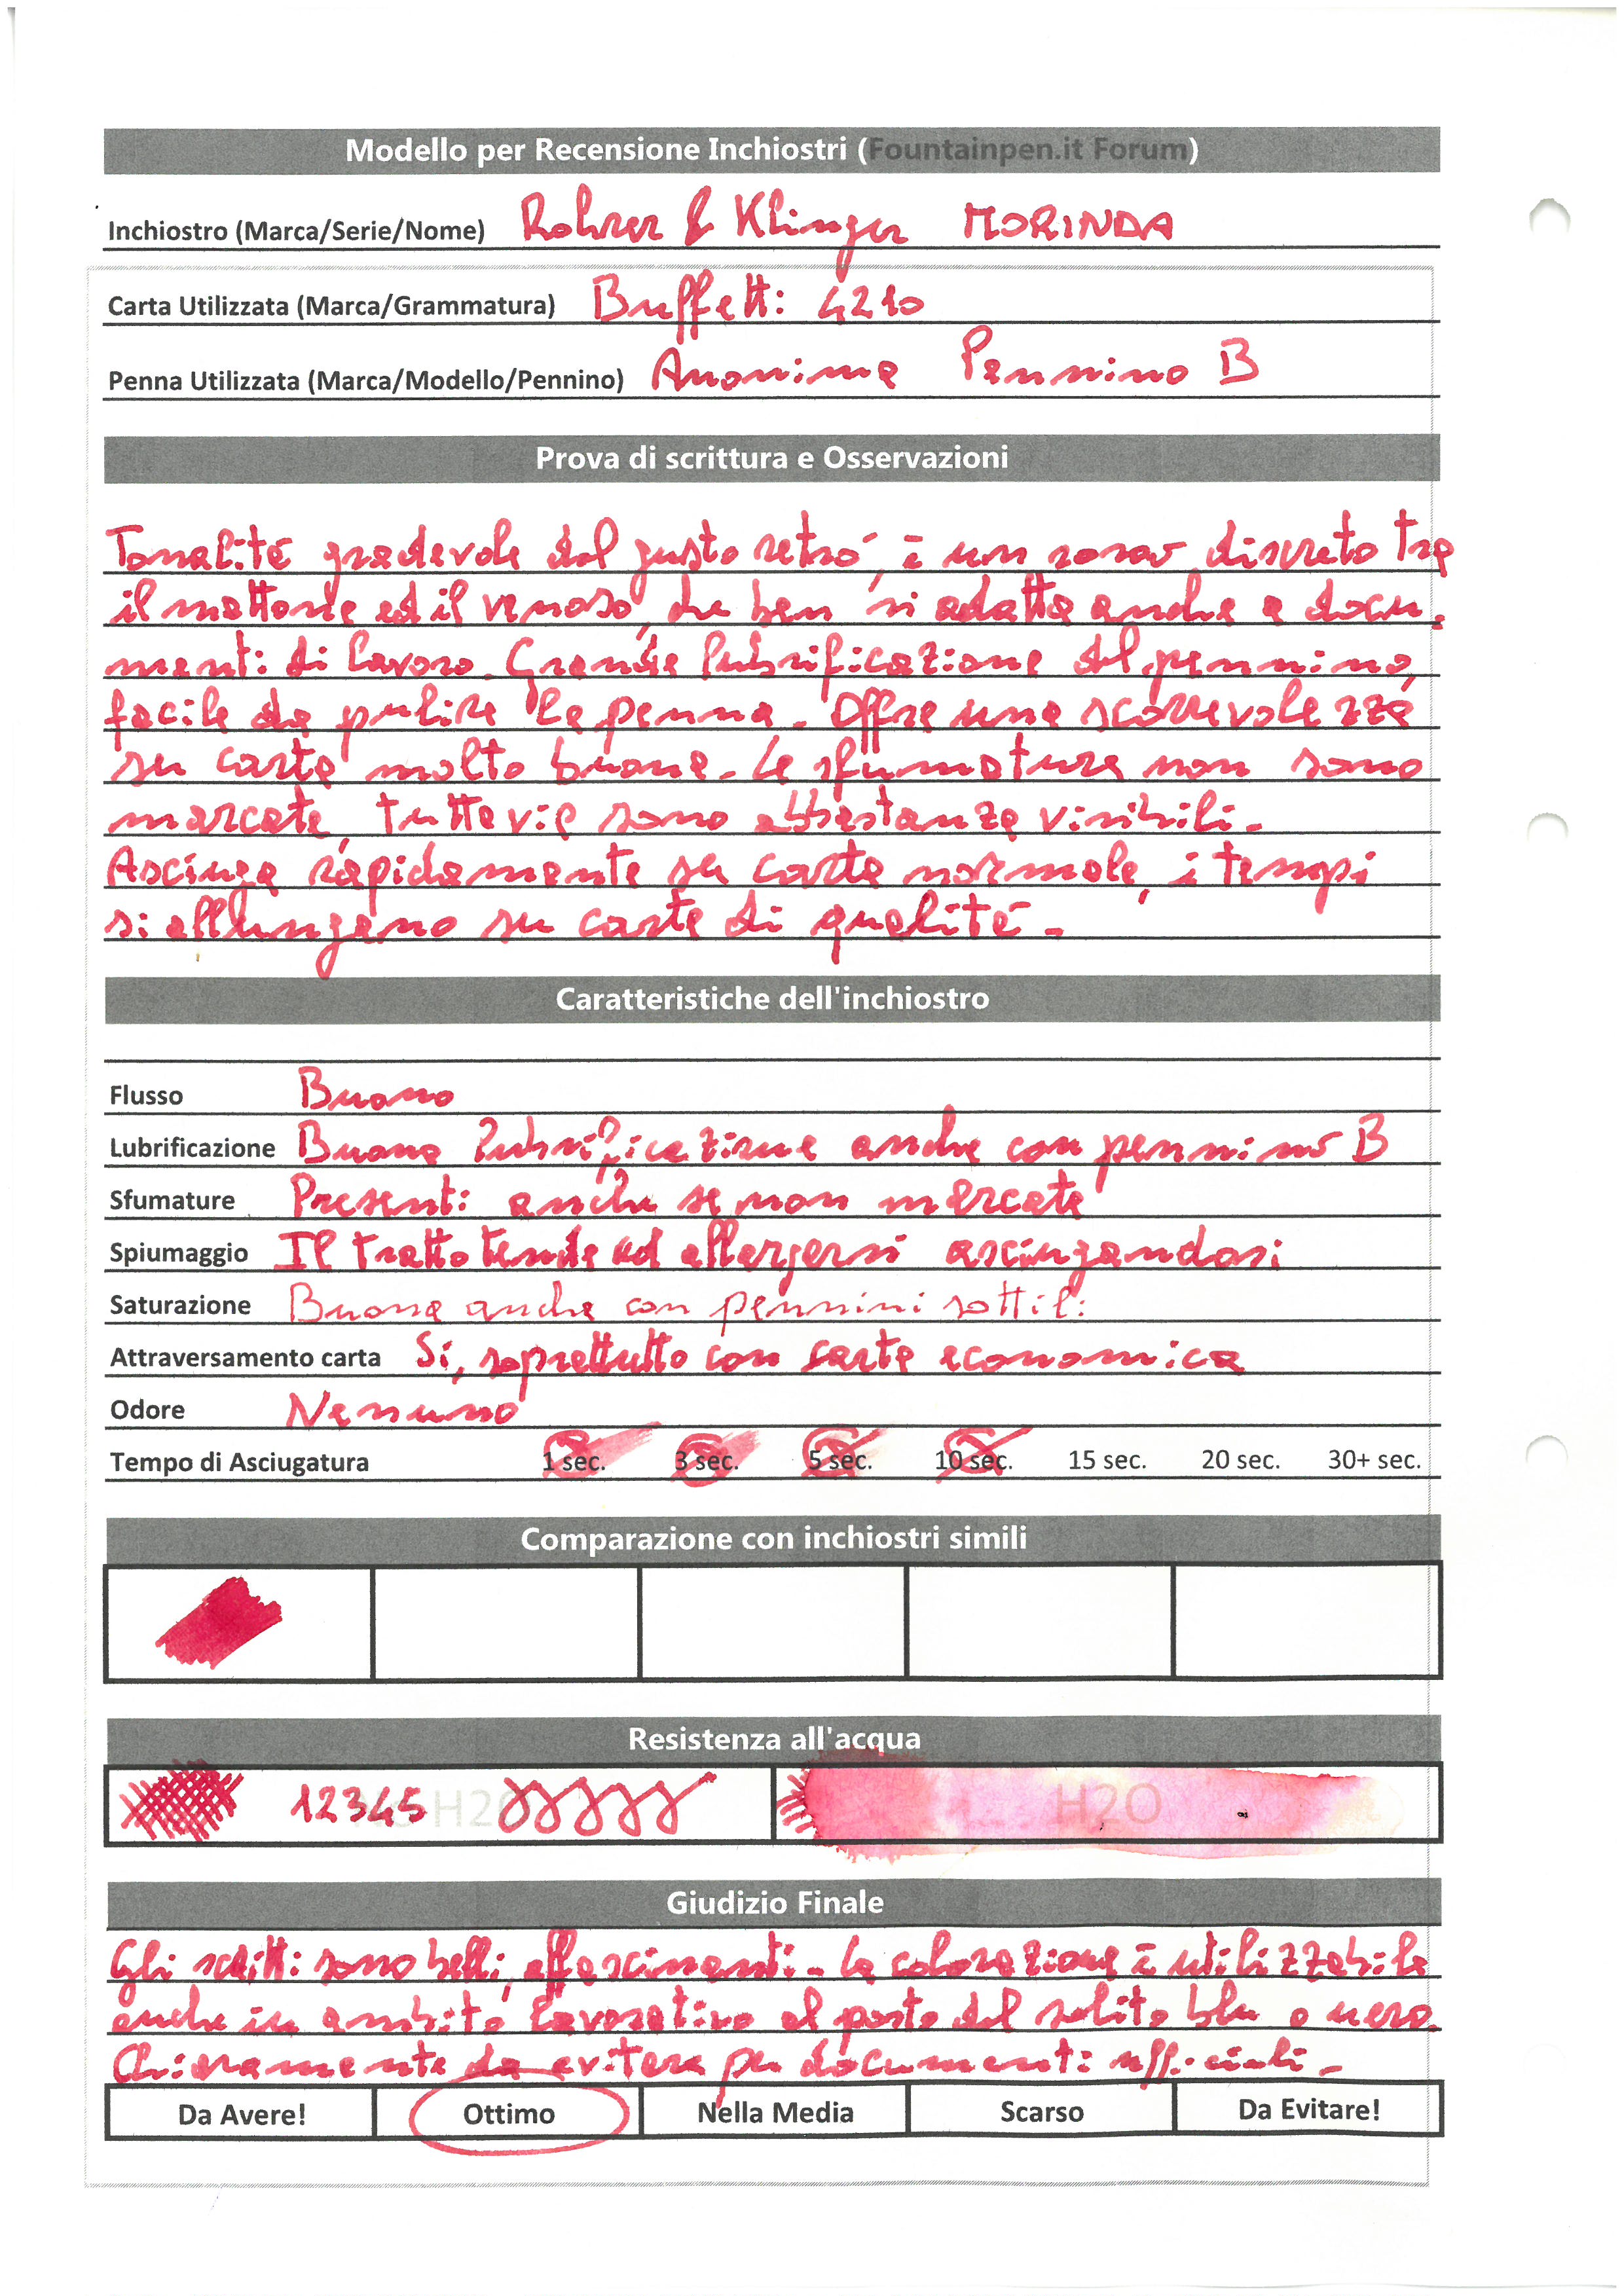 Modello per Recensione Inchiostri (Fountainpen.it Forum)
Inchiostro (Marca/Serie/Nome) Rohrer & Klinger MORINDA
Carta Utilizzata (Marca/Grammatura) Buffetti 4210
Penna Utilizzata (Marca/Modello/Pennino) Anonima Pennino B
Prova di scrittura e Osservazioni
Tonalità gradevole dal gusto retrò, è un rosso discreto tra
il mattone ed il venoso, che ben si adatta anche a docu-
menti di lavoro. Grande lubrificazione del pennino,
facile da pulire la penna. Offre una scorrevolezza
su carta molto buona. Le sfumature non sono
marcate, tuttavia sono abbastanza visibili.
Asciuga rapidamente su carta normale, i tempi
si allungano su carte di qualità.
Caratteristiche dell'inchiostro
Flusso Buono
Lubrificazione Buona lubrificazione anche con pennino B
Sfumature Presenti anche se non marcate
Spiumaggio Il tratto tende ad allargarsi asciugandosi
Saturazione Buona anche con pennini sottili
Attraversamento carta Sì, soprattutto con carta economica
Odore Nessuno
Tempo di Asciugatura 1 sec. 3 sec. 5 sec. 10 sec. 15 sec. 20 sec. 30+ sec.
Comparazione con inchiostri simili
Resistenza all'acqua
12345 H2O H2O
Giudizio Finale
Gli scritti sono belli, affascinanti. La colorazione è utilizzabile
anche in ambito lavorativo al posto del solito blu o nero.
Chiaramente da evitare per documenti ufficiali.
Da Avere! Ottimo Nella Media Scarso Da Evitare!